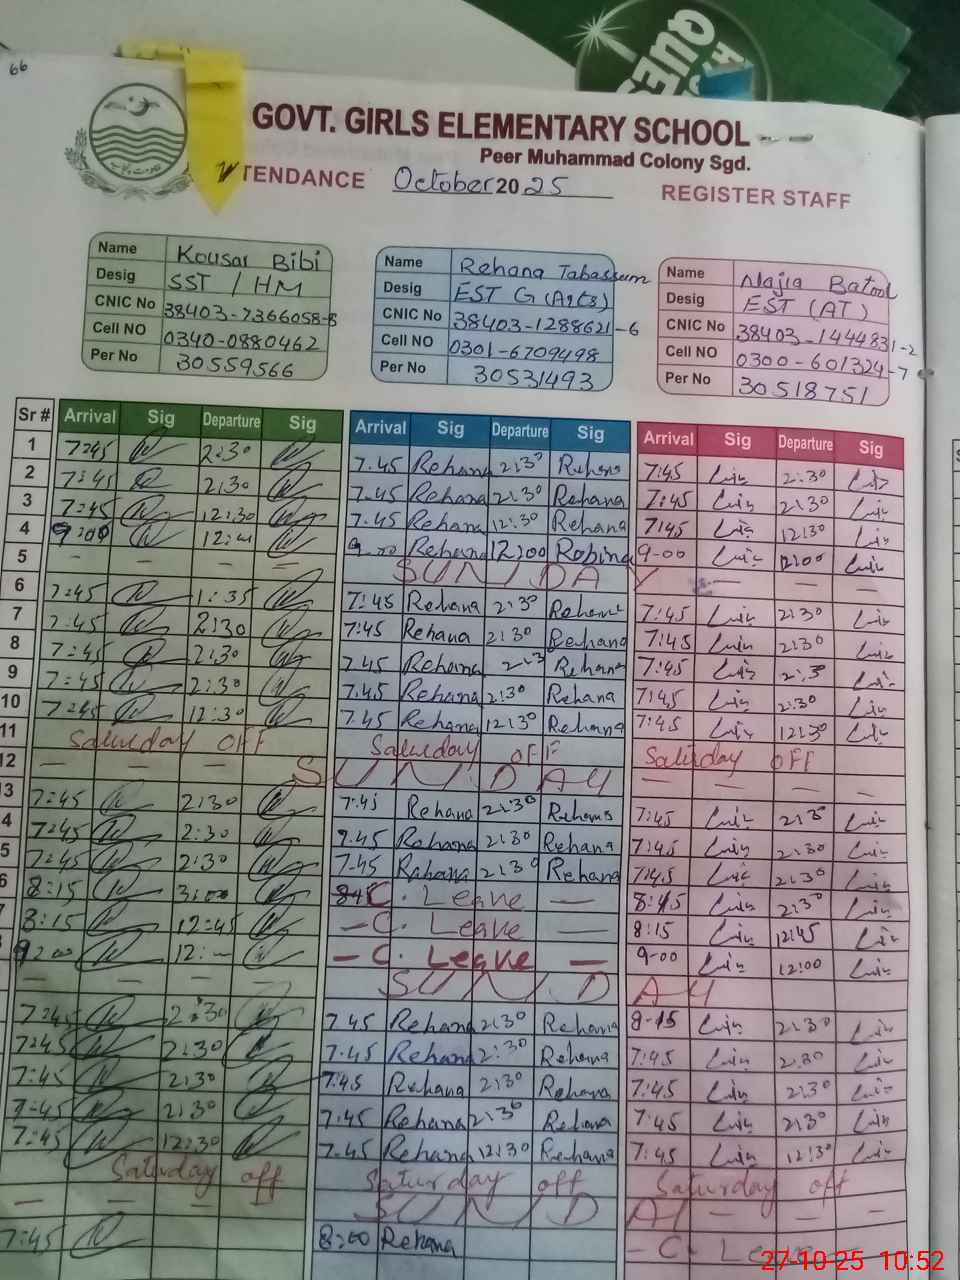 66
QUE
GOVT. GIRLS ELEMENTARY SCHOOL
Peer Muhammad Colony Sgd.
TENDANCE October 2025 REGISTER STAFF
Name Kousar Bibi Name Rehana Tabassum Name Najia Batool
Desig SST / HM Desig EST G (Arts) Desig EST (AT)
CNIC No 38403-7366058-8 CNIC No 38403-1288621-6 CNIC No 38403-1444831-2
Cell NO 0340-0880462 Cell NO 0301-6709498 Cell NO 0300-601324-7
Per No 30559566 Per No 30531493 Per No 30518751
Sr # Arrival Sig Departure Sig Arrival Sig Departure Sig Arrival Sig Departure Sig
1 7:45 2:30 7.45 Rehana 2:30 Rehana 7:45 2:30
2 7:45 2:30 7.45 Rehana 2:30 Rehana 7:45 2:30
3 7:45 12:30 7.45 Rehana 12:30 Rehana 7:45 12:30
4 9:00 12: 9-00 Rehana 12:00 Robina 9-00 12:00
5 — — — — SUNDAY — — —
6 7:45 1:35 7:45 Rehana 2:30 Rehana 7:45 2:30
7 7:45 2:30 7:45 Rehana 2:30 Rehana 7:45 2:30
8 7:45 2:30 7.45 Rehana 2:3 Rehana 7:45 2:3
9 7:45 2:30 7.45 Rehana 2:30 Rehana 7:45 2:30
10 7:45 12:30 7.45 Rehana 12:30 Rehana 7:45 12:30
11 Saturday OFF Saturday OFF Saturday OFF
12 — — — — SUNDAY — — —
13 7:45 2:30 7:45 Rehana 2:30 Rehana 7:45 2:30
4 7:45 2:30 7.45 Rehana 2:30 Rehana 7:45 2:30
5 7:45 2:30 7.45 Rehana 2:30 Rehana 7:45 2:30
6 8:15 3:00 C. Leave — 8:45 2:30
7 8:15 12:45 — C. Leave — 8:15 12:45
8 9:00 12: — C. Leave — 9-00 12:00
— — — — SUNDAY
7:45 2:30 7.45 Rehana 2:30 Rehana 8-15 2:30
7:45 2:30 7.45 Rehana 2:30 Rehana 7:45 2:30
7:45 2:30 7:45 Rehana 2:30 Rehana 7:45 2:30
7:45 2:30 7:45 Rehana 2:30 Rehana 7:45 2:30
7:45 12:30 7.45 Rehana 12:30 Rehana 7:45 12:30
Saturday off Saturday off Saturday off
— — — — SUNDAY — — —
7:45 8:00 Rehana — C. Leave
27-10-25 10:52